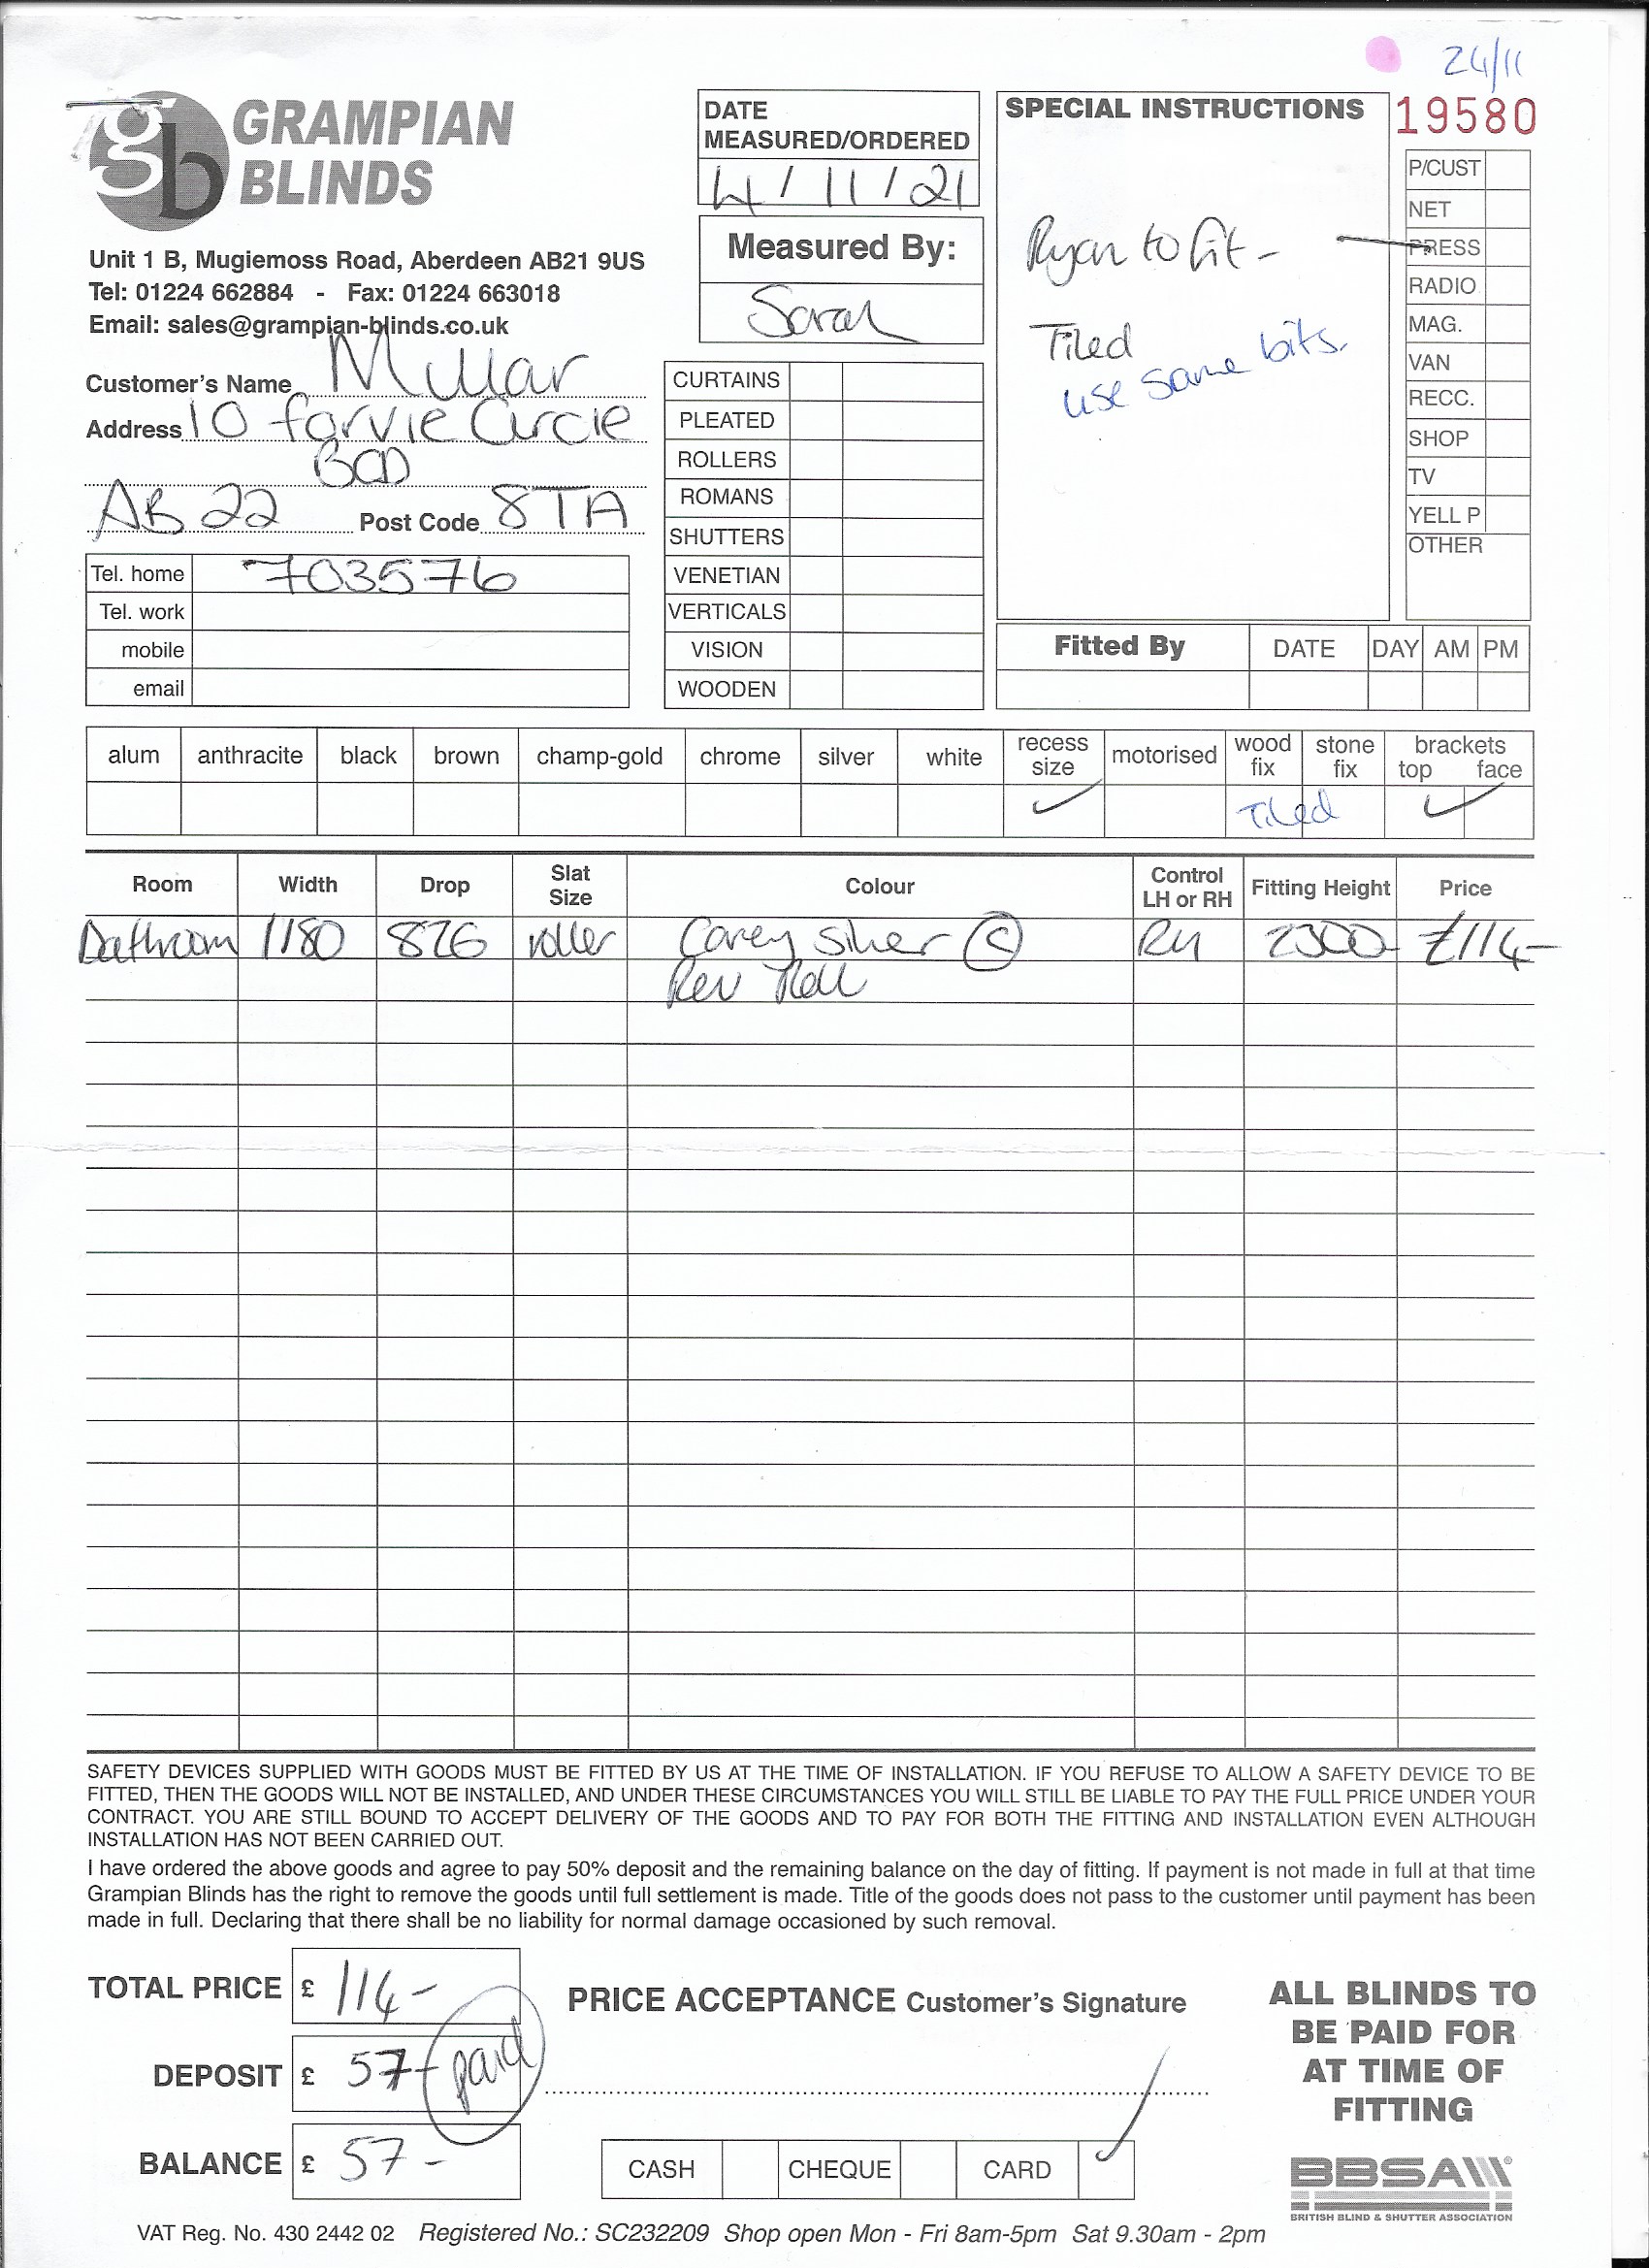 24/11
GRAMPIAN
BLINDS
gb
Unit 1 B, Mugiemoss Road, Aberdeen AB21 9US
Tel: 01224 662884 - Fax: 01224 663018
Email: sales@grampian-blinds.co.uk
Customer's Name Millar
Address 10 forvie Circle
BOD
AB 22 Post Code 8TA
Tel. home 703576
Tel. work
mobile
email
DATE
MEASURED/ORDERED
4 / 11 / 21
Measured By:
Sarah
CURTAINS
PLEATED
ROLLERS
ROMANS
SHUTTERS
VENETIAN
VERTICALS
VISION
WOODEN
SPECIAL INSTRUCTIONS
Ryan to fit -
Tiled
use same bits.
19580
P/CUST
NET
PRESS
RADIO
MAG.
VAN
RECC.
SHOP
TV
YELL P
OTHER
Fitted By DATE DAY AM PM
alum anthracite black brown champ-gold chrome silver white recess size motorised wood fix stone fix brackets top face
Tiled
Room Width Drop Slat Size Colour Control LH or RH Fitting Height Price
Bathroom 1180 826 roller Carey Silver C RH 2300 £114-
Rev Roll
SAFETY DEVICES SUPPLIED WITH GOODS MUST BE FITTED BY US AT THE TIME OF INSTALLATION. IF YOU REFUSE TO ALLOW A SAFETY DEVICE TO BE
FITTED, THEN THE GOODS WILL NOT BE INSTALLED, AND UNDER THESE CIRCUMSTANCES YOU WILL STILL BE LIABLE TO PAY THE FULL PRICE UNDER YOUR
CONTRACT. YOU ARE STILL BOUND TO ACCEPT DELIVERY OF THE GOODS AND TO PAY FOR BOTH THE FITTING AND INSTALLATION EVEN ALTHOUGH
INSTALLATION HAS NOT BEEN CARRIED OUT.
I have ordered the above goods and agree to pay 50% deposit and the remaining balance on the day of fitting. If payment is not made in full at that time
Grampian Blinds has the right to remove the goods until full settlement is made. Title of the goods does not pass to the customer until payment has been
made in full. Declaring that there shall be no liability for normal damage occasioned by such removal.
TOTAL PRICE £ 114-
DEPOSIT £ 57- paid
BALANCE £ 57-
PRICE ACCEPTANCE Customer's Signature
CASH CHEQUE CARD
ALL BLINDS TO
BE PAID FOR
AT TIME OF
FITTING
BBSA
BRITISH BLIND & SHUTTER ASSOCIATION
VAT Reg. No. 430 2442 02 Registered No.: SC232209 Shop open Mon - Fri 8am-5pm Sat 9.30am - 2pm